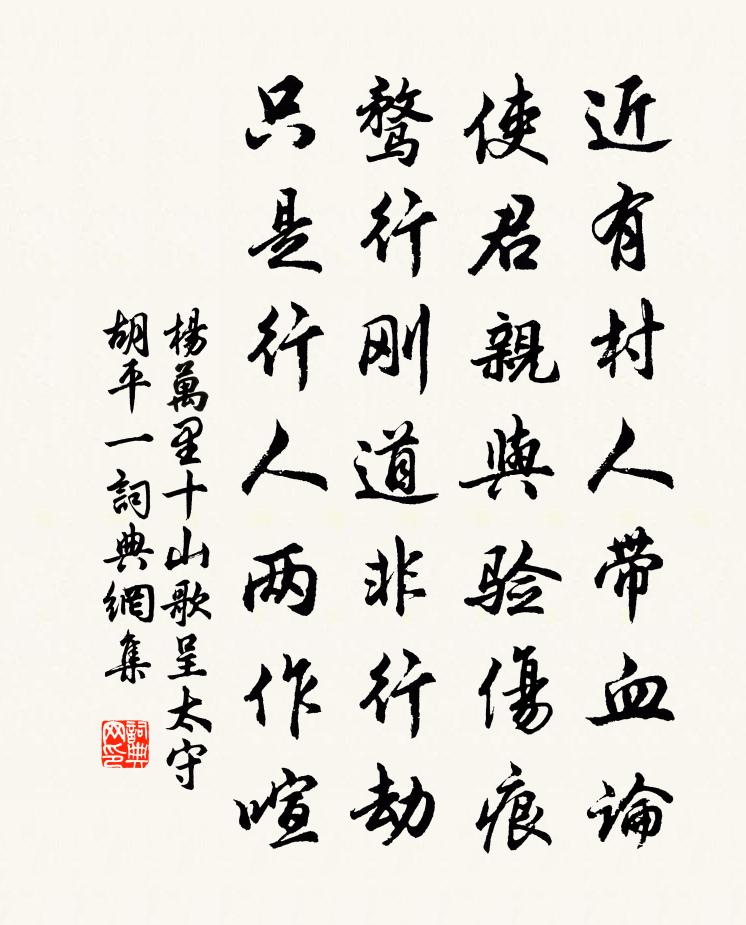 近有村人带血論
使君親與验傷痕
鹜行刚道非行劫
只是行人两作喧
楊萬里十山歌呈太守
胡平一詞典網集
詞典网印